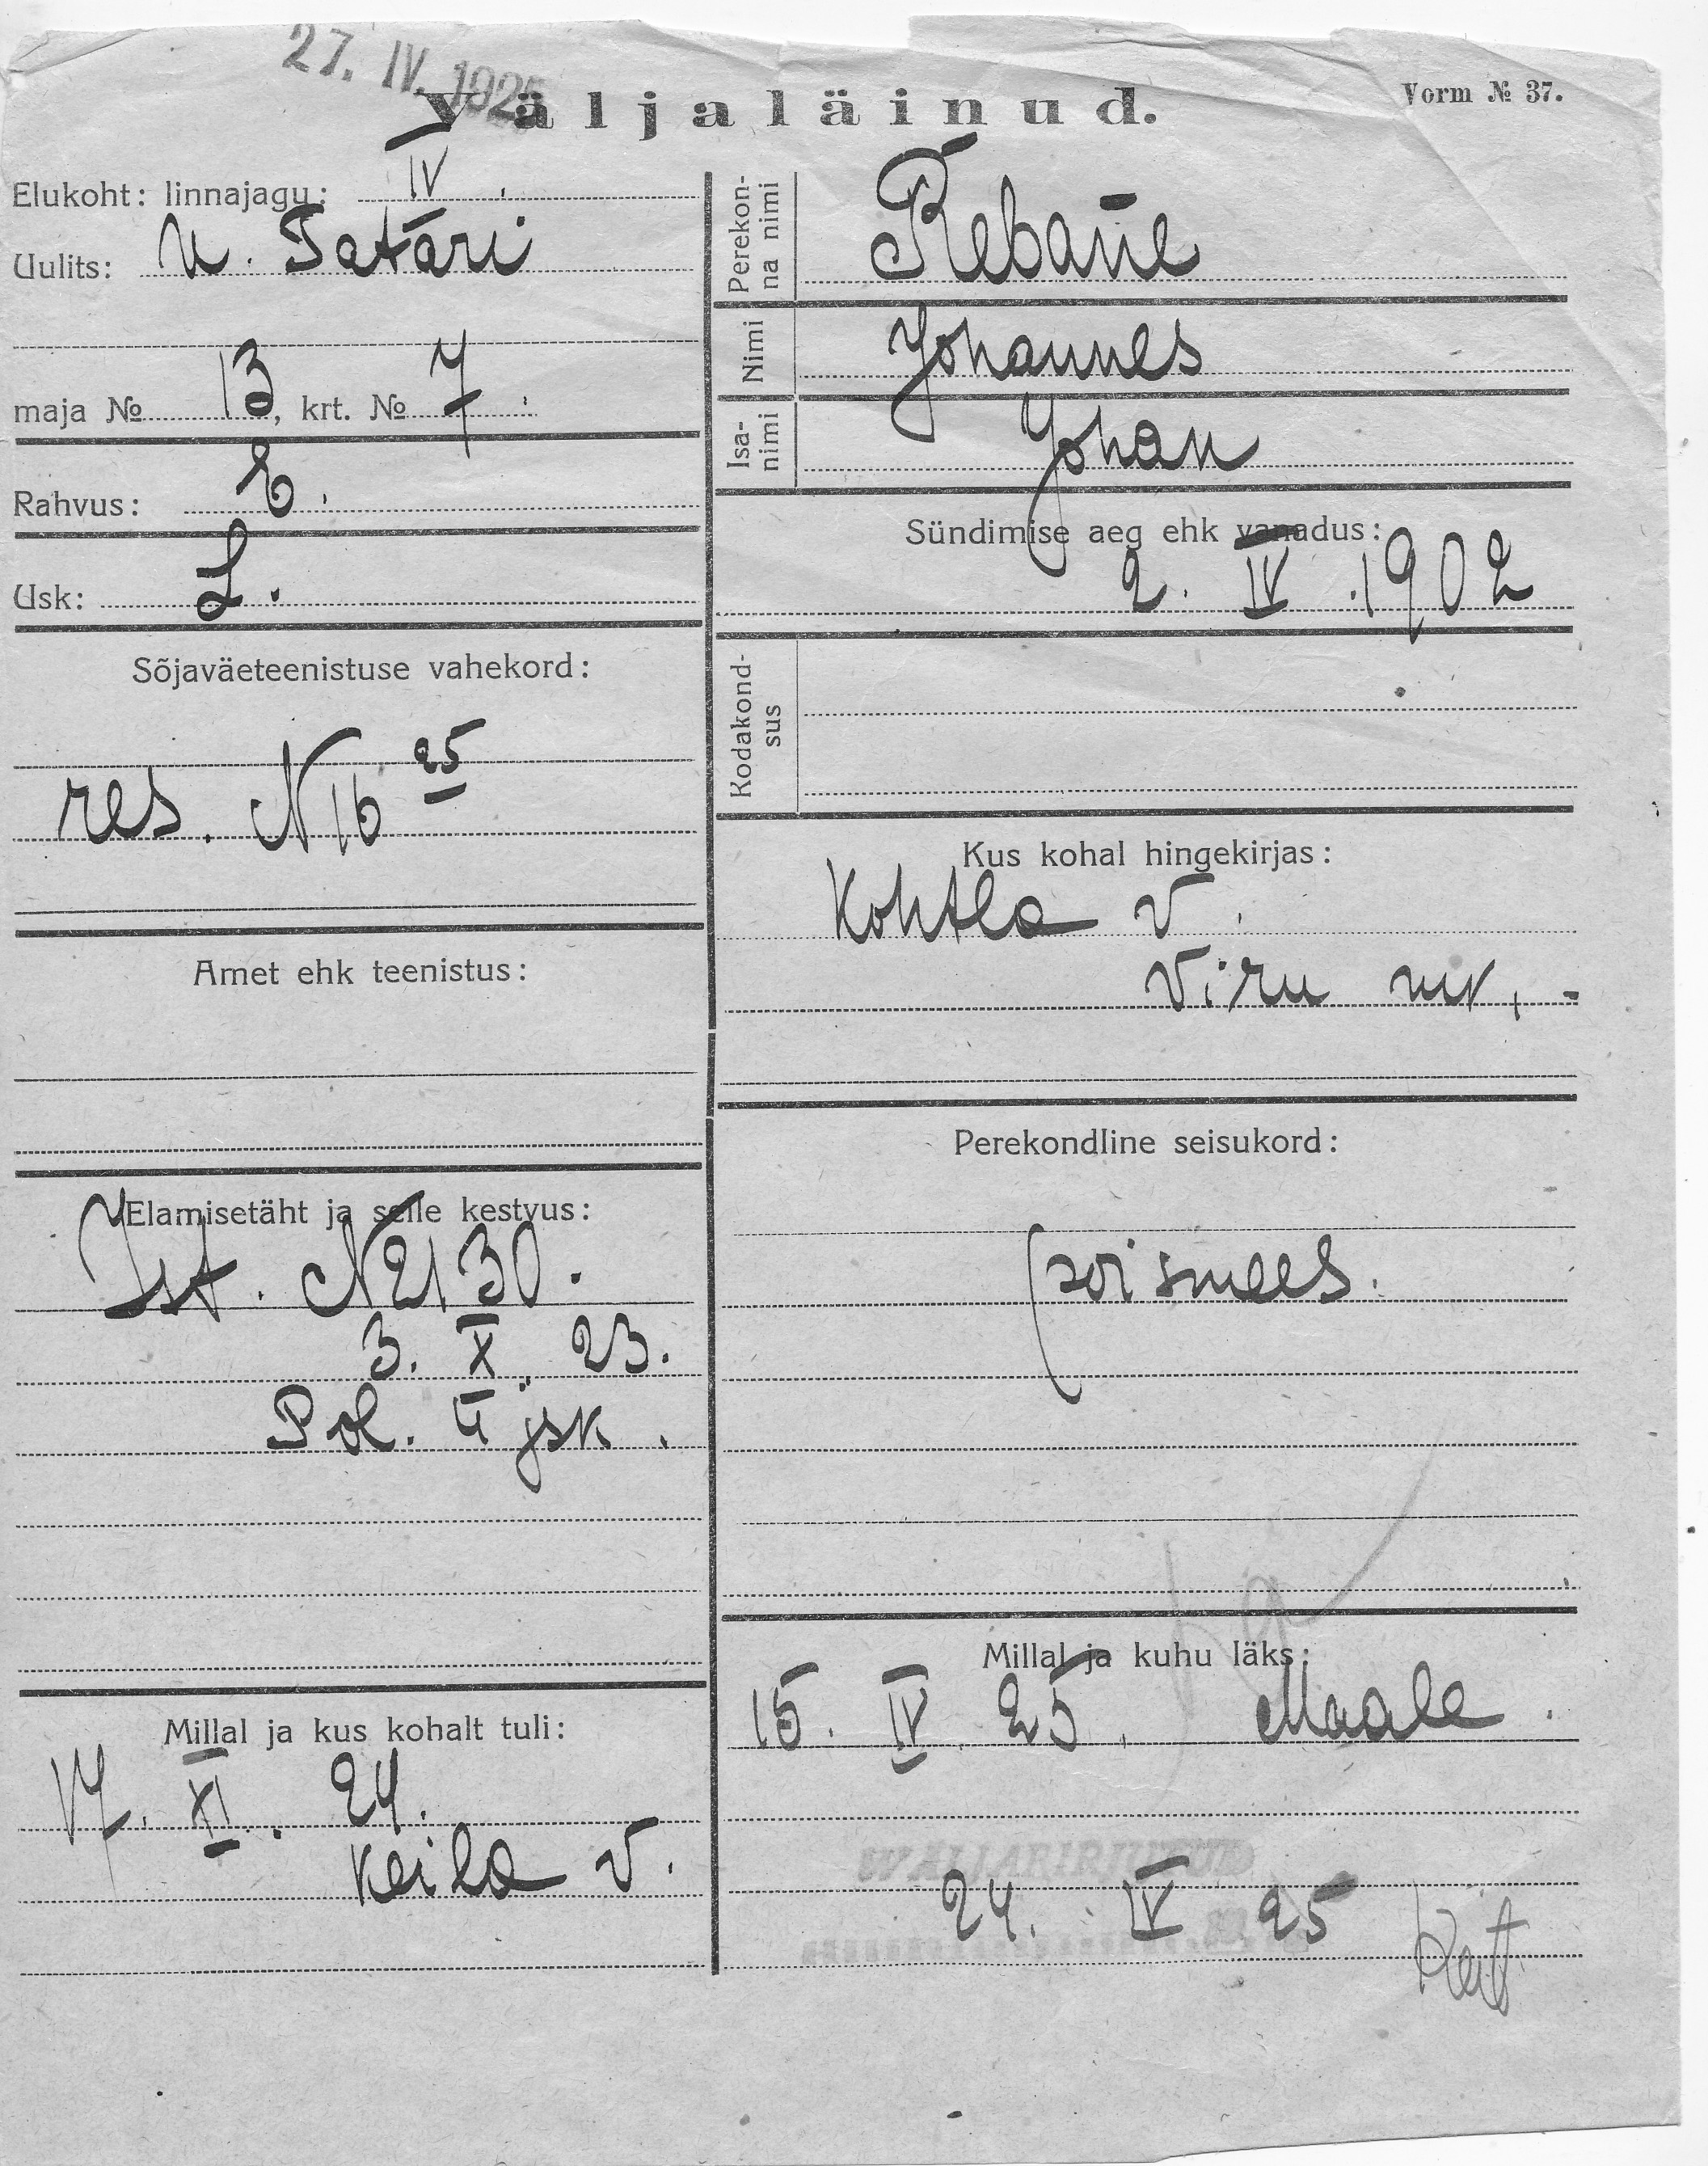 27. IV. 1925
Väljaläinud.
Vorm № 37.
Elukoht: linnajagu: IV.
Uulits: U. Tatari
maja № 13, krt. № 7.
Rahvus: E.
Usk: L.
Sõjaväeteenistuse vahekord:
res. N 16 25
Amet ehk teenistus:
Elamisetäht ja selle kestvus:
Ist. N 2130.
3. X. 23.
Pol. jsk.
Millal ja kus kohalt tuli:
17. XI. 24.
Keila v.
Perekon-
na nimi
Rebane
Nimi Johannes
Isa-
nimi
Johan
Sündimise aeg ehk vanadus:
2. IV. 1902
Kodakond-
sus
Kus kohal hingekirjas:
Kohtla v.
Viru mk. -
Perekondline seisukord:
poismees.
Millal ja kuhu läks:
15. IV. 25. Maale.
VÄLJAKIRJUTUD
24. IV 25